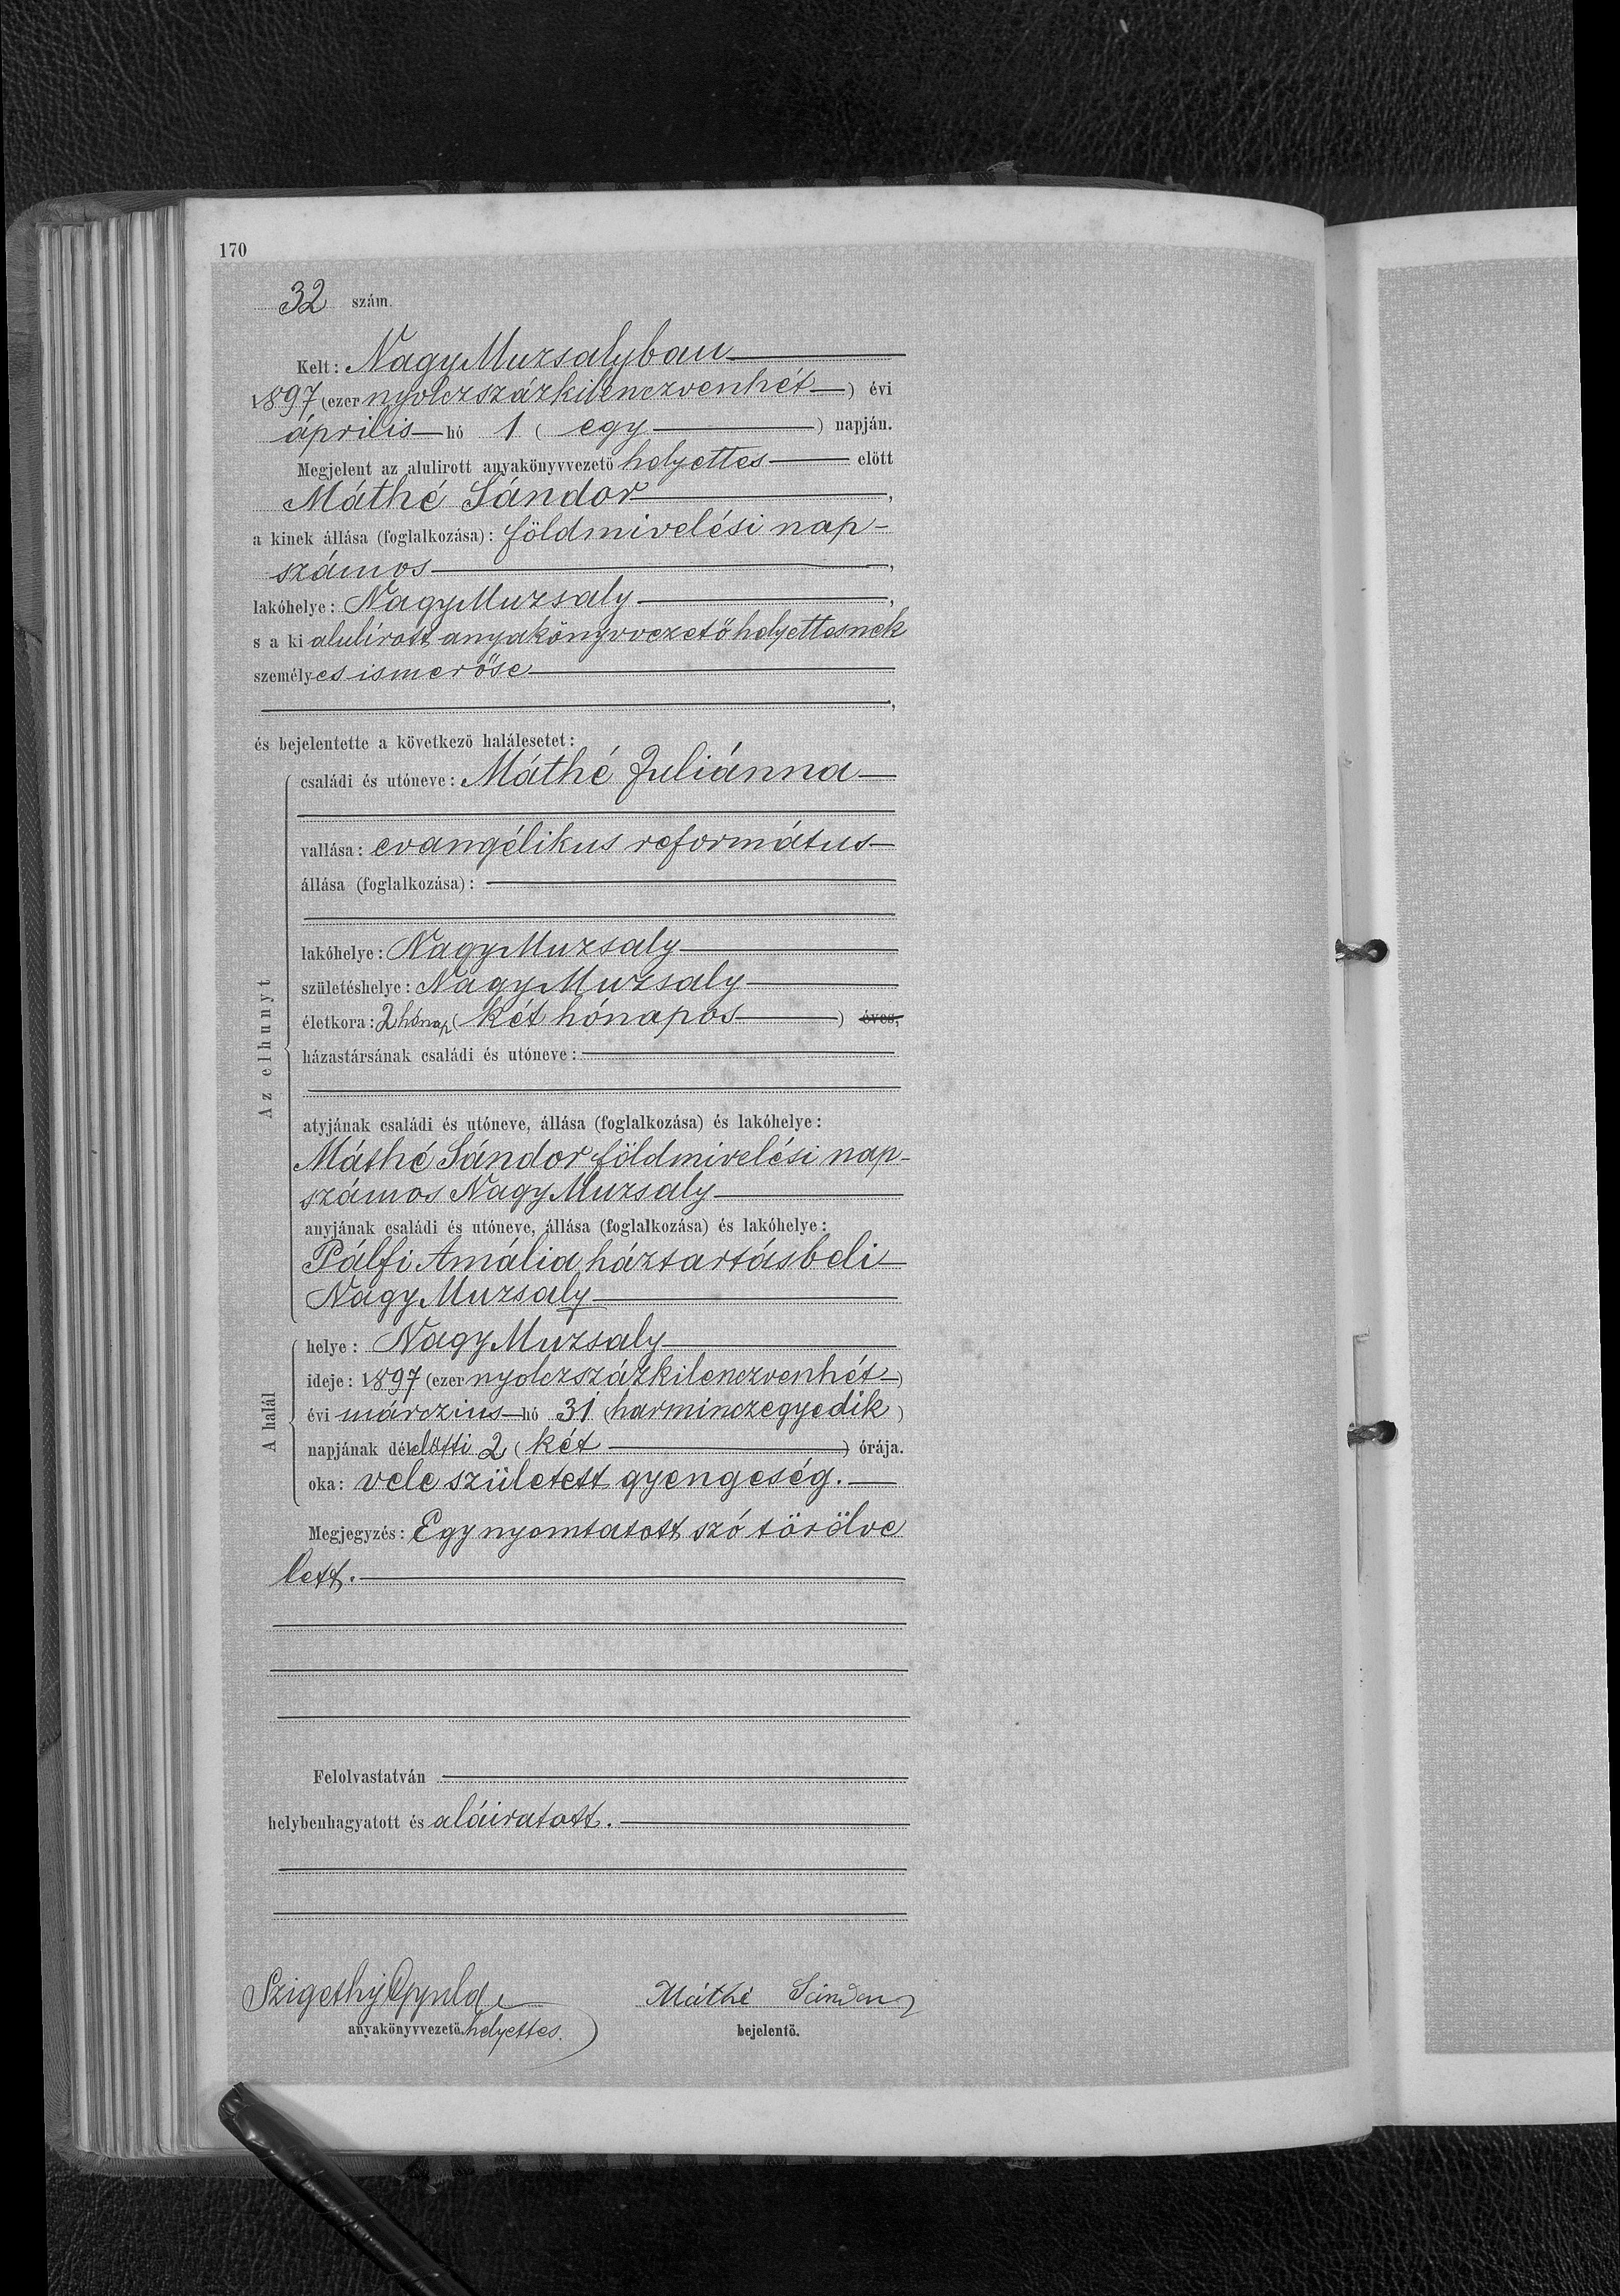 170
32 szám.
Kelt: NagyMuzsalyban
1897 (ezer nyolczszázkilenczvenhét) évi
április hó 1 (egy) napján.
Megjelent az alulirott anyakönyvvezető helyettes előtt
Máthé Sándor,
a kinek állása (foglalkozása): földmivelési nap-
számos,
lakóhelye: NagyMuzsaly,
s a ki alulírott anyakönyvvezető helyettesnek
személyes ismerőse
,
és bejelentette a következő halálesetet:
Az elhunyt
családi és utóneve: Máthé Juliánna
vallása: evangélikus református
állása (foglalkozása):
lakóhelye: NagyMuzsaly
születéshelye: NagyMuzsaly
életkora: 2 hónap (két hónapos) éves,
házastársának családi és utóneve:
atyjának családi és utóneve, állása (foglalkozása) és lakóhelye:
Máthé Sándor földmivelési nap-
számos NagyMuzsaly
anyjának családi és utóneve, állása (foglalkozása) és lakóhelye:
Pálfi Amália háztartásbeli
NagyMuzsaly
A halál
helye: NagyMuzsaly
ideje: 1897 (ezer nyolczszázkilenczvenhét)
évi márczius hó 31 (harminczegyedik)
napjának délelőtti 2 (két) órája.
oka: vele született gyengeség.
Megjegyzés: Egy nyomtatott szó törölve
lett.
Felolvastatván
helybenhagyatott és aláiratott.
Szigethy Gyula Máthé Sándor
anyakönyvvezető helyettes. bejelentő.